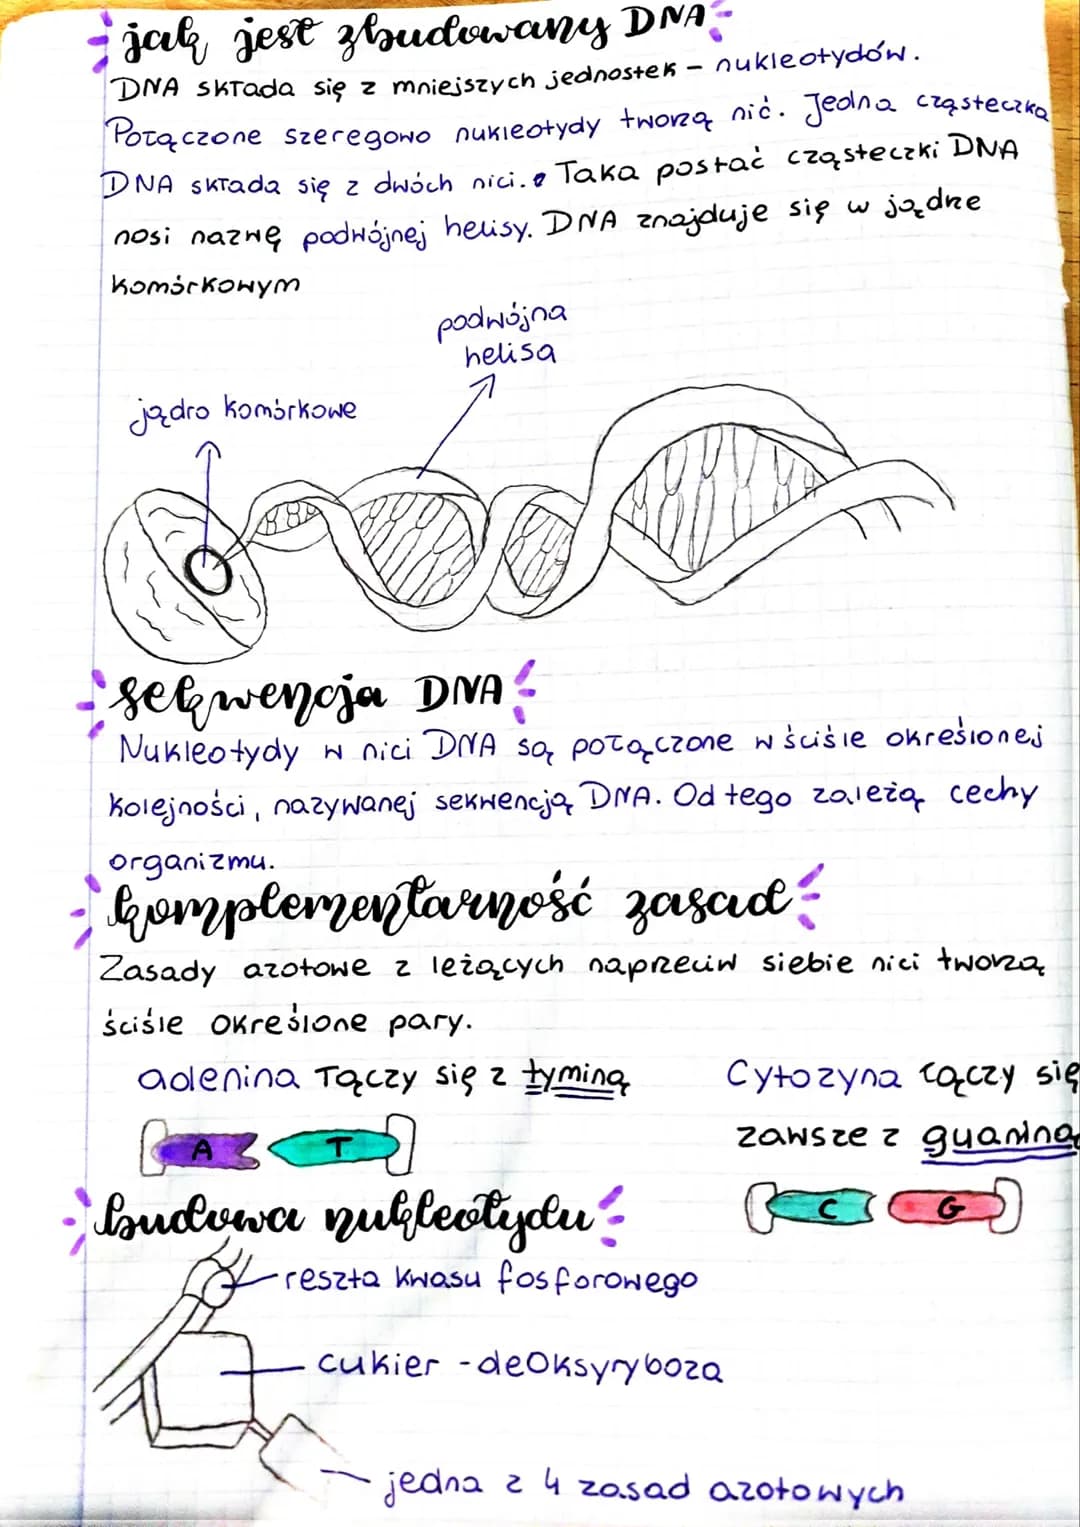 jak jest zbudowany DNA
DNA składa się z mniejszych jednostek - nukleotydów.
Połączone szeregowo nukleotydy tworzą nić. Jedna cząsteczka
DNA składa się z dwóch nici. Taka postać cząsteczki DNA
nosi nazwę podwójnej helisy. DNA znajduje się w jądrze
komórkowym
podwójna
helisa
jądro komórkowe
sekwencja DNA
Nukleotydy w nici DNA są połączone w ściśle określonej
kolejności, nazywanej sekwencją DNA. Od tego zależą cechy
organizmu.
komplementarność zasad
Zasady azotowe z leżących naprzeciw siebie nici tworzą
ściśle określone pary.
adenina łączy się z tyminą
Cytozyna łączy się
zawsze z guaniną
A T
C G
budowa nukleotydu
reszta kwasu fosforowego
cukier - deoksyryboza
jedna z 4 zasad azotowych